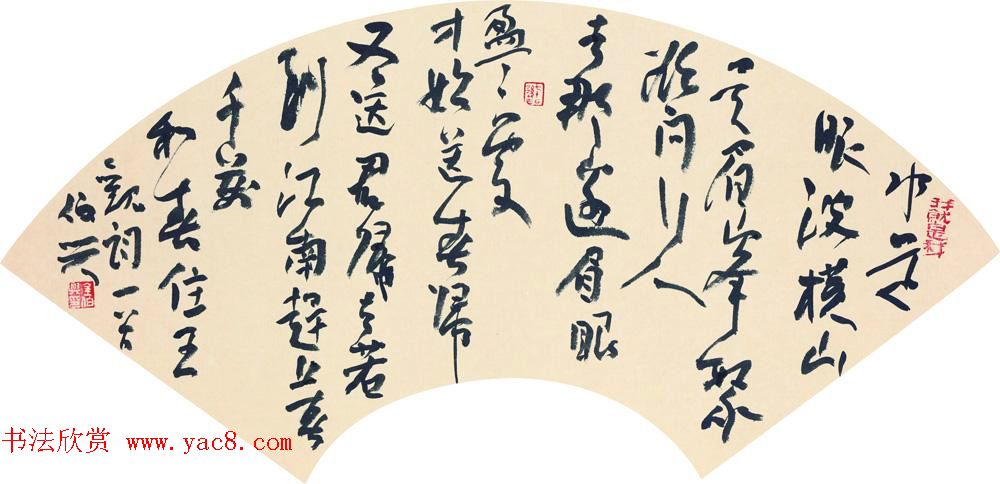 水是
眼波横山
是眉峰聚
欲问行人
去那边眉眼
盈盈处
才始送春归
又送君归去若
到江南赶上春
千萬
和春住王
觀词一首
伯
书法欣赏 www.yac8.com